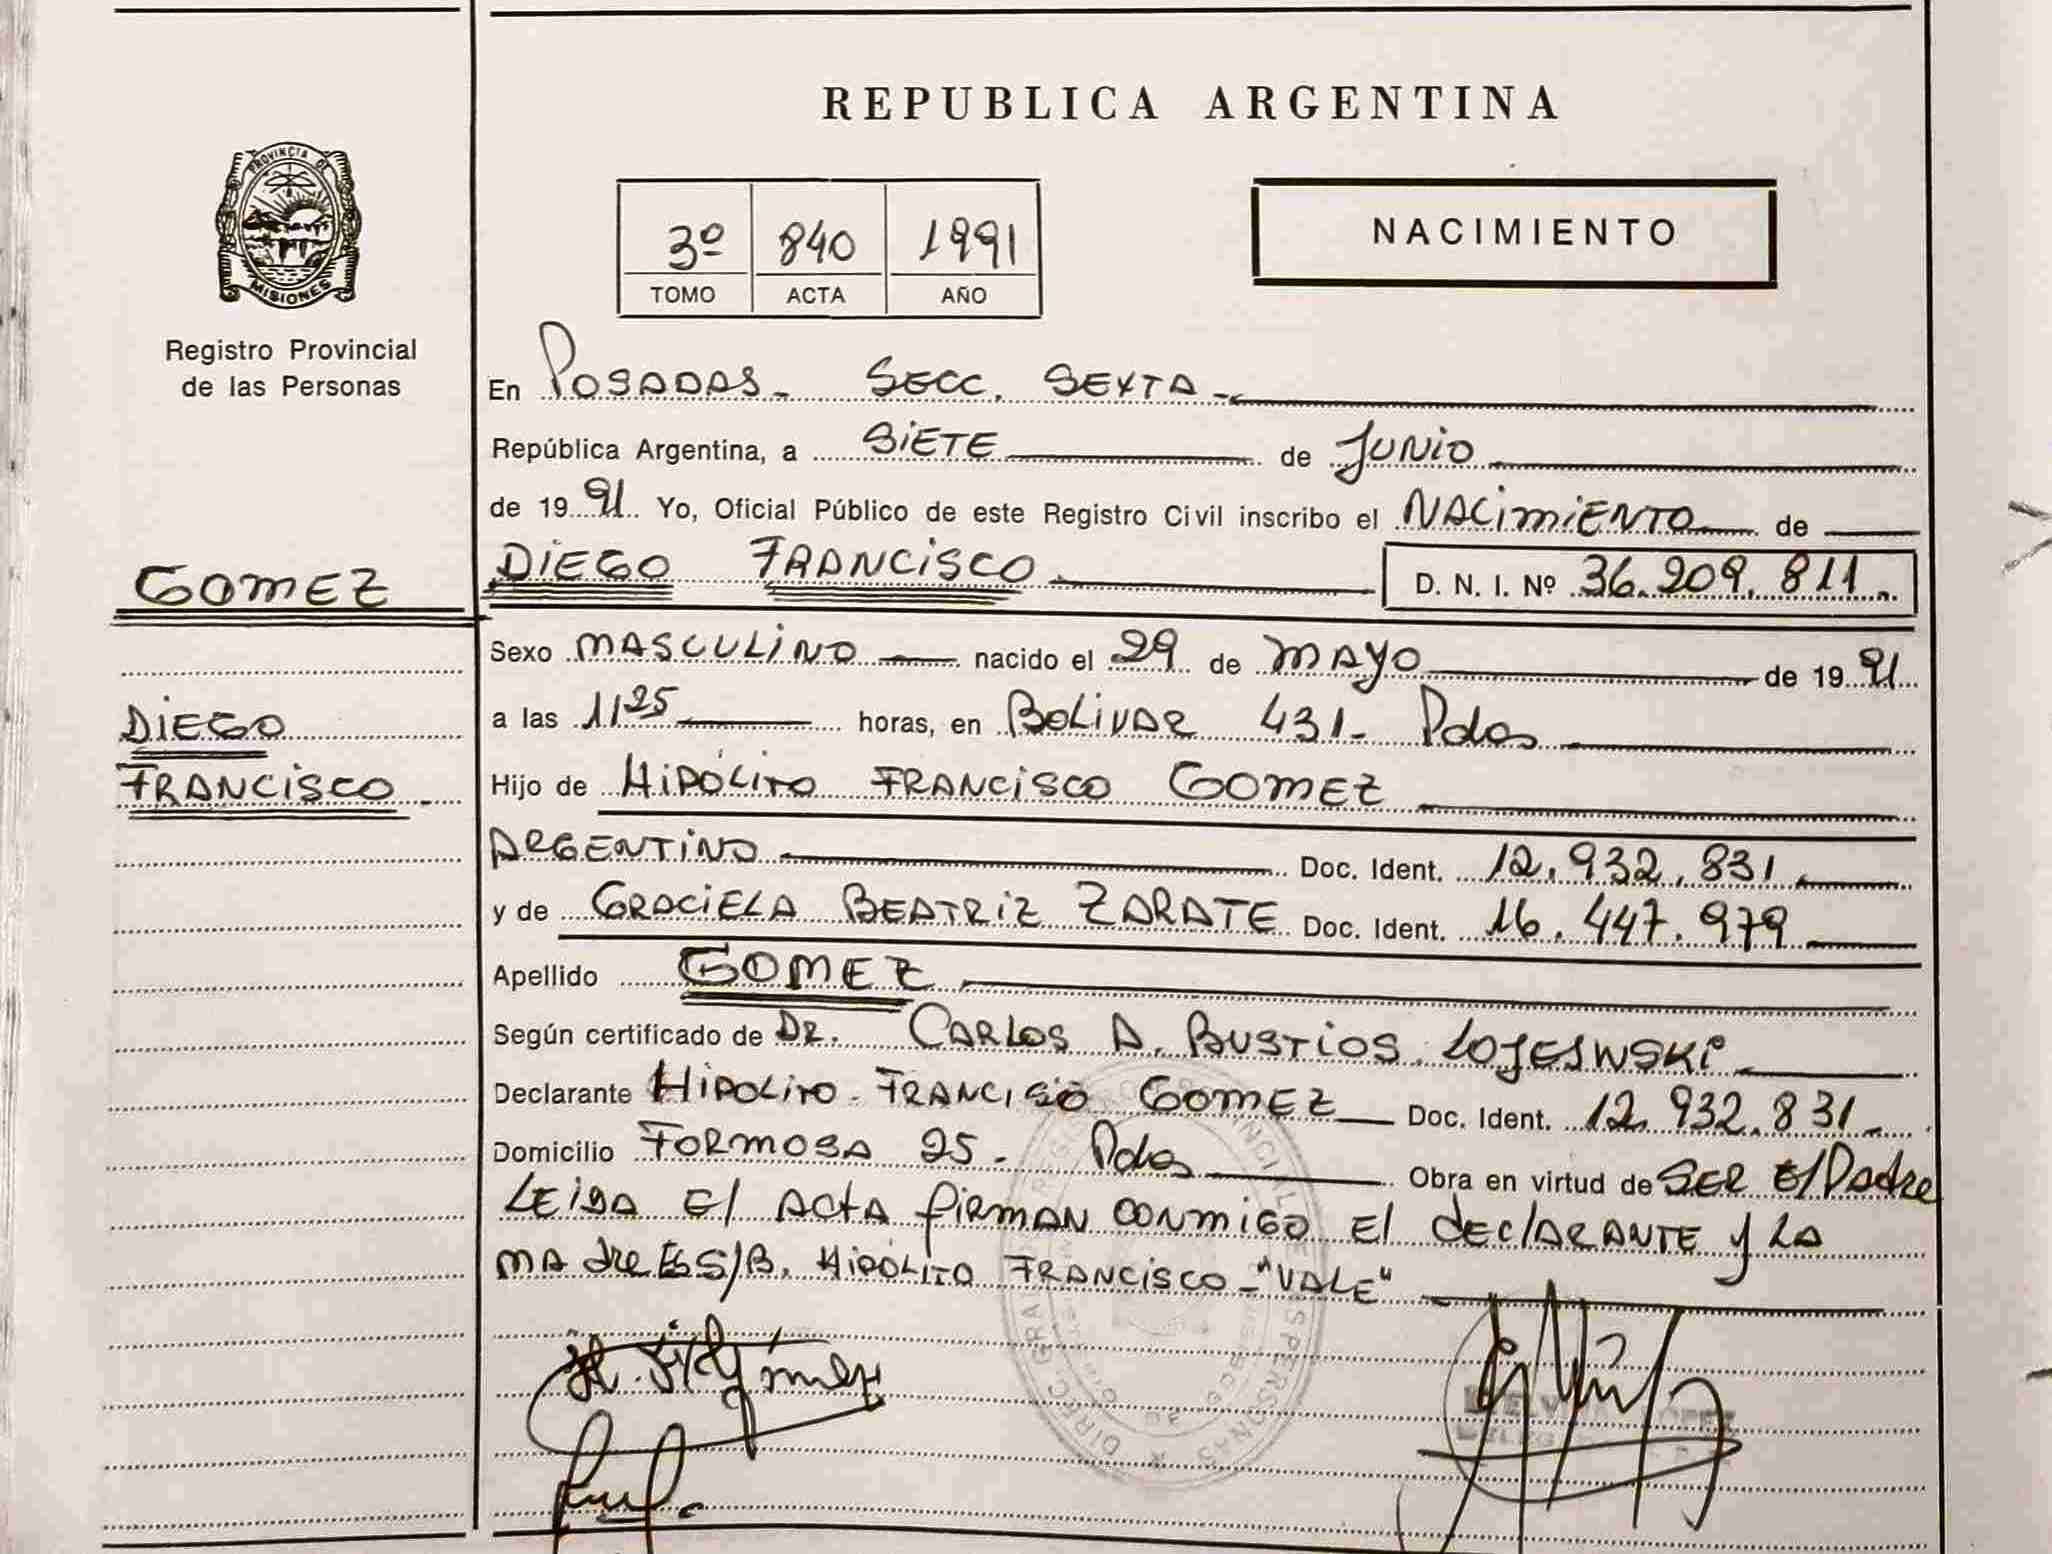 REPUBLICA ARGENTINA
PROVINCIA DE
MISIONES
Registro Provincial
de las Personas
3º 840 1991
TOMO ACTA AÑO
NACIMIENTO
En POSADAS - SECC. SEXTA -
República Argentina, a SIETE de JUNIO
de 1991 Yo, Oficial Público de este Registro Civil inscribo el NACIMIENTO de
DIEGO FRANCISCO D. N. I. Nº 36.209.811.
GOMEZ
DIEGO
FRANCISCO
Sexo MASCULINO nacido el 29 de MAYO de 1991
a las 11 25 horas, en BOLIVAR 431 - Pdas
Hijo de HIPÓLITO FRANCISCO GOMEZ
ARGENTINO Doc. Ident. 12.932.831
y de GRACIELA BEATRIZ ZARATE Doc. Ident. 16.447.979
Apellido GOMEZ
Según certificado de DR. CARLOS A. BUSTIOS LOJESWSKI
Declarante HIPOLITO FRANCISO GOMEZ Doc. Ident. 12.932.831
Domicilio FORMOSA 25 - Pdas Obra en virtud de SER El Padre
LEIDA El ACTA FIRMAN CONMIGO El DEClARANTE Y LA
MAdRE S/B. HIPÓLITO FRANCISCO - "VALE"